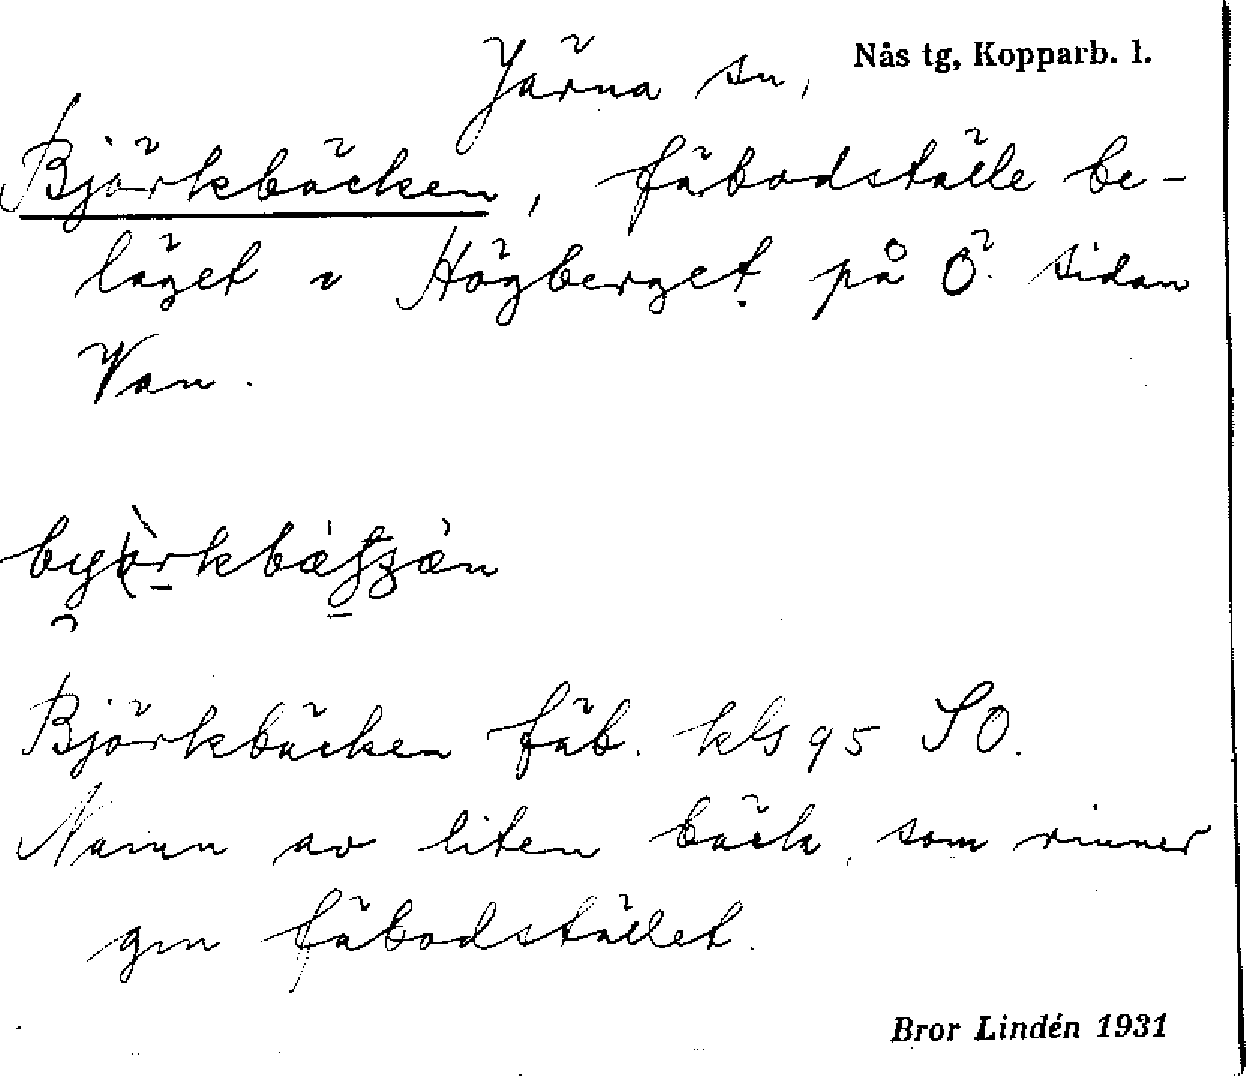 Järna sn, Nås tg, Kopparb. l.
Björkbäcken, fäbodställe be-
läget i Högberget på Ö. sidan
Van.
Björkbäcken fäb. kbl 95 SO.
Namn av liten bäck, som rinner
gm fäbodstället.
Bror Lindén 1931